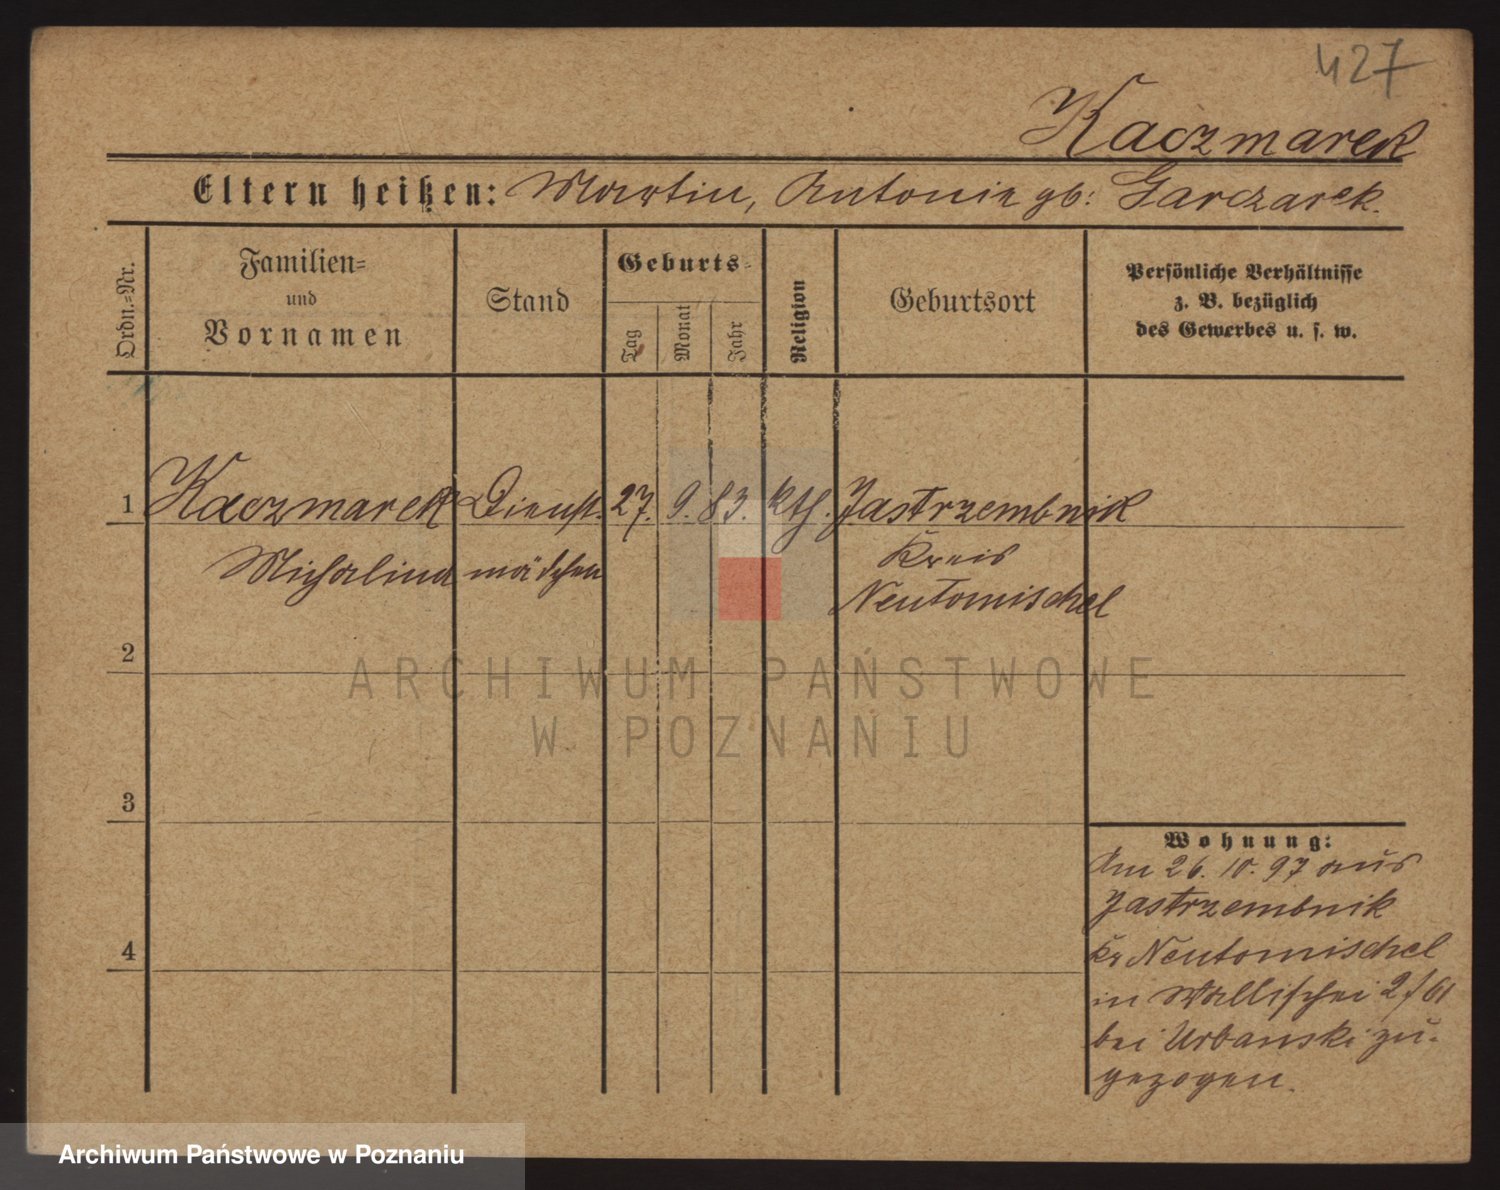 427
Kaczmarek
Eltern heißen: Martin, Antonie gb: Garczarek.
Ordn.-Nr.
Familien-
und
Vornamen
Stand
Geburts-
Tag
Monat
Jahr
Religion
Geburtsort
Persönliche Verhältnisse
z. B. bezüglich
des Gewerbes u. s. w.
1 Kaczmarek Dienst- 27. 9. 83. kth. Jastrzembnik
Michalina mädchen Kreis
Neutomischel
2
3
4
Wohnung:
Am 26. 10. 97 aus
Jastrzembnik
Kr Neutomischel
in Wallischei 2/61
bei Urbanski zu-
gezogen.
ARCHIWUM PAŃSTWOWE
W POZNANIU
Archiwum Państwowe w Poznaniu